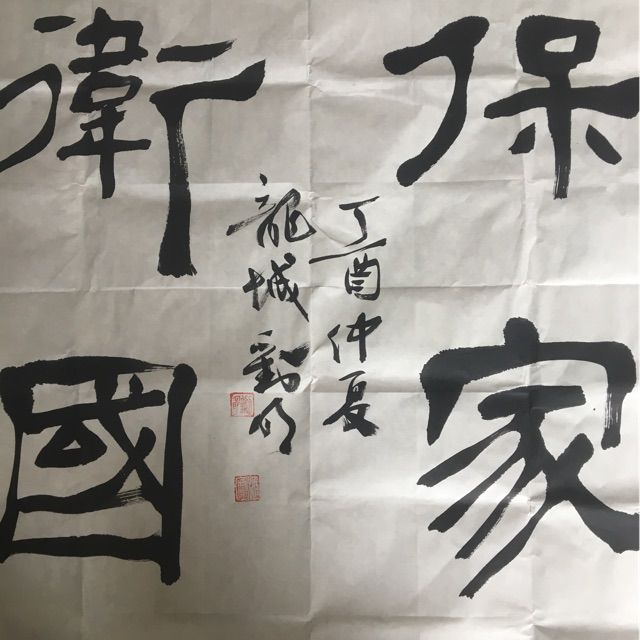 保家
衛國
丁酉仲夏
龍城劉明